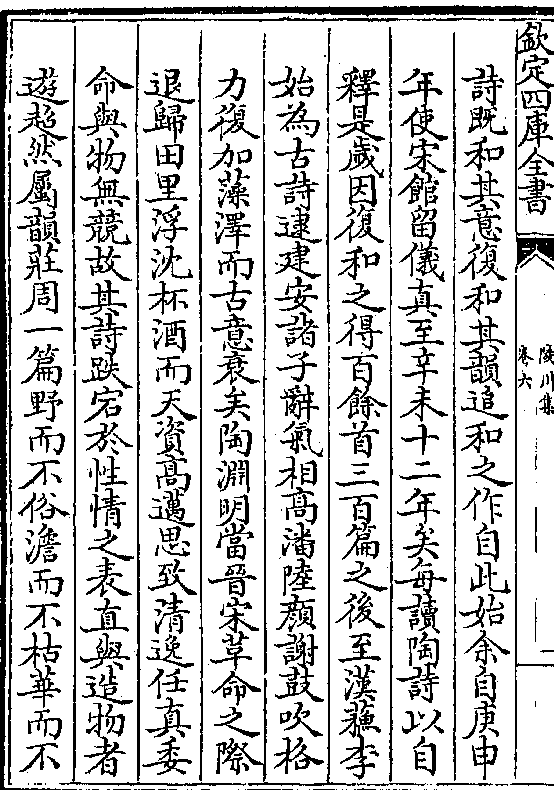 欽定四庫全書
陵川集
卷六
詩既和其意復和其韻追和之作自此始余自庚申
年使宋館留儀真至辛未十二年矣每讀陶詩以自
釋是歲因復和之得百餘首三百篇之後至漢蘓李
始為古詩逮建安諸子辭氣相高潘陸顔謝鼓吹格
力復加藻澤而古意衰矣陶淵明當晉宋革命之際
退歸田里浮沈杯酒而天資髙邁思致清逸任真委
命與物無競故其詩跌宕於性情之表直與造物者
遊超然屬韻莊周一篇野而不俗澹而不枯華而不